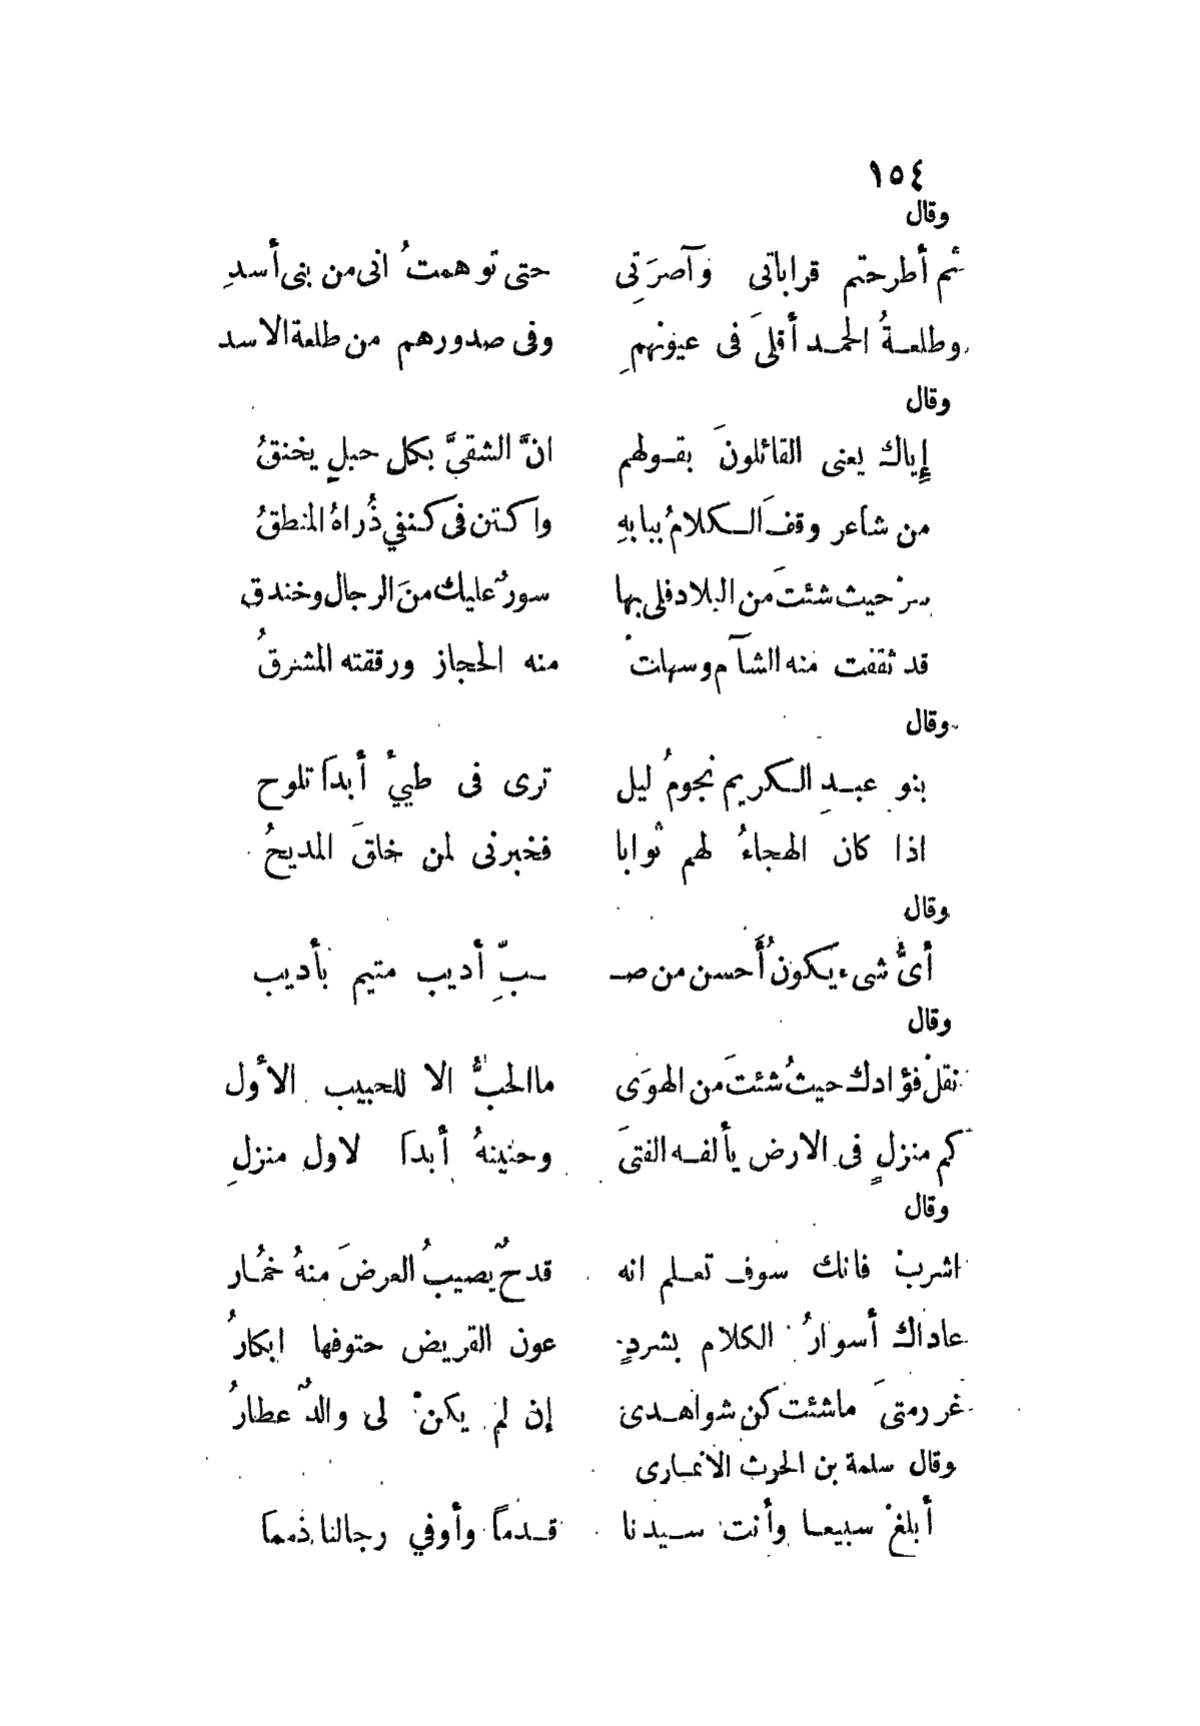 ١٥٤
وقال
ثم أطرحتم قراباتى وآصرَتِى حتى توهمتُ انى من بنى أسدِ
وطلعةُ الحمد أقلىَ فى عيونهمِ وفى صدورهم من طلعة الاسد
وقال
إِياك يعنى القائلونَ بقولهم انَّ الشقيَّ بكل حبلٍ يخنقُ
من شاعر وقفَ الكلامُ ببابهِ واكتن فى كنفي ذُراهُ المنطقُ
سرْ حيث شئتَ من البلاد فلى بها سورٌ عليك منَ الرجال وخندق
قد ثقفت منه الشآم وسهلتْ منه الحجاز ورققته المشرقُ
وقال
بنو عبدِ الكريم نجومُ ليل ترى فى طيئٍ أبدًا تلوح
اذا كان الهجاءُ لهم ثوابا فخبرنى لمن خلقَ المديحُ
وقال
أىُّ شىء يكونُ أَحسن من صـ ـبِّ أديب متيم بأديب
وقال
نقلْ فؤادك حيثُ شئتَ من الهوَى ماالحبُّ الا للحبيب الأول
كم منزلٍ فى الارض يألفه الفتىَ وحنينهُ أبدًا لاول منزلِ
وقال
اشربْ فانك سوف تعلم انه قدحٌ يصيبُ العرضَ منهُ خمُار
عاداك أسوارُ الكلام بشردٍ عون القريض حتوفها ابكارُ
غرر متىَ ماشئت كن شواهدى إن لم يكنْ لى والدٌ عطارُ
وقال سلمة بن الحرث الانمارى
أبلغْ سبيعا وأنت سيدنا قدماً وأوفي رجالنا ذمما